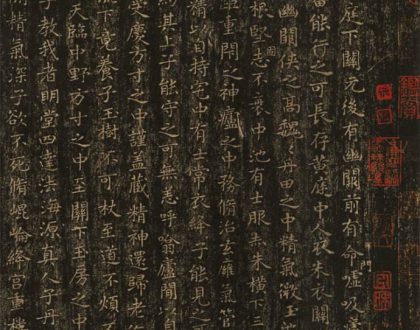 庭下關元後有幽闕前有命噓吸
審能行之可長存黃庭中人衣朱衣關
幽闕俠之高巍巍丹田之中精氣微玉
根堅志不衰中池有士服赤朱橫下三
重閉之神廬之中務脩治玄廱氣管
精以自持宅中有士常衣絳子能見之
約其上子能守之可無恙呼噏廬間以自
受慶方寸之中謹蓋藏精神還歸老復
下竟養子玉樹不可杖至道不煩不
天臨中野方寸之中至關下玉房之中
子教我者明堂四達法海源真人子丹
精氣深子欲不死脩崐崘絳宮重樓